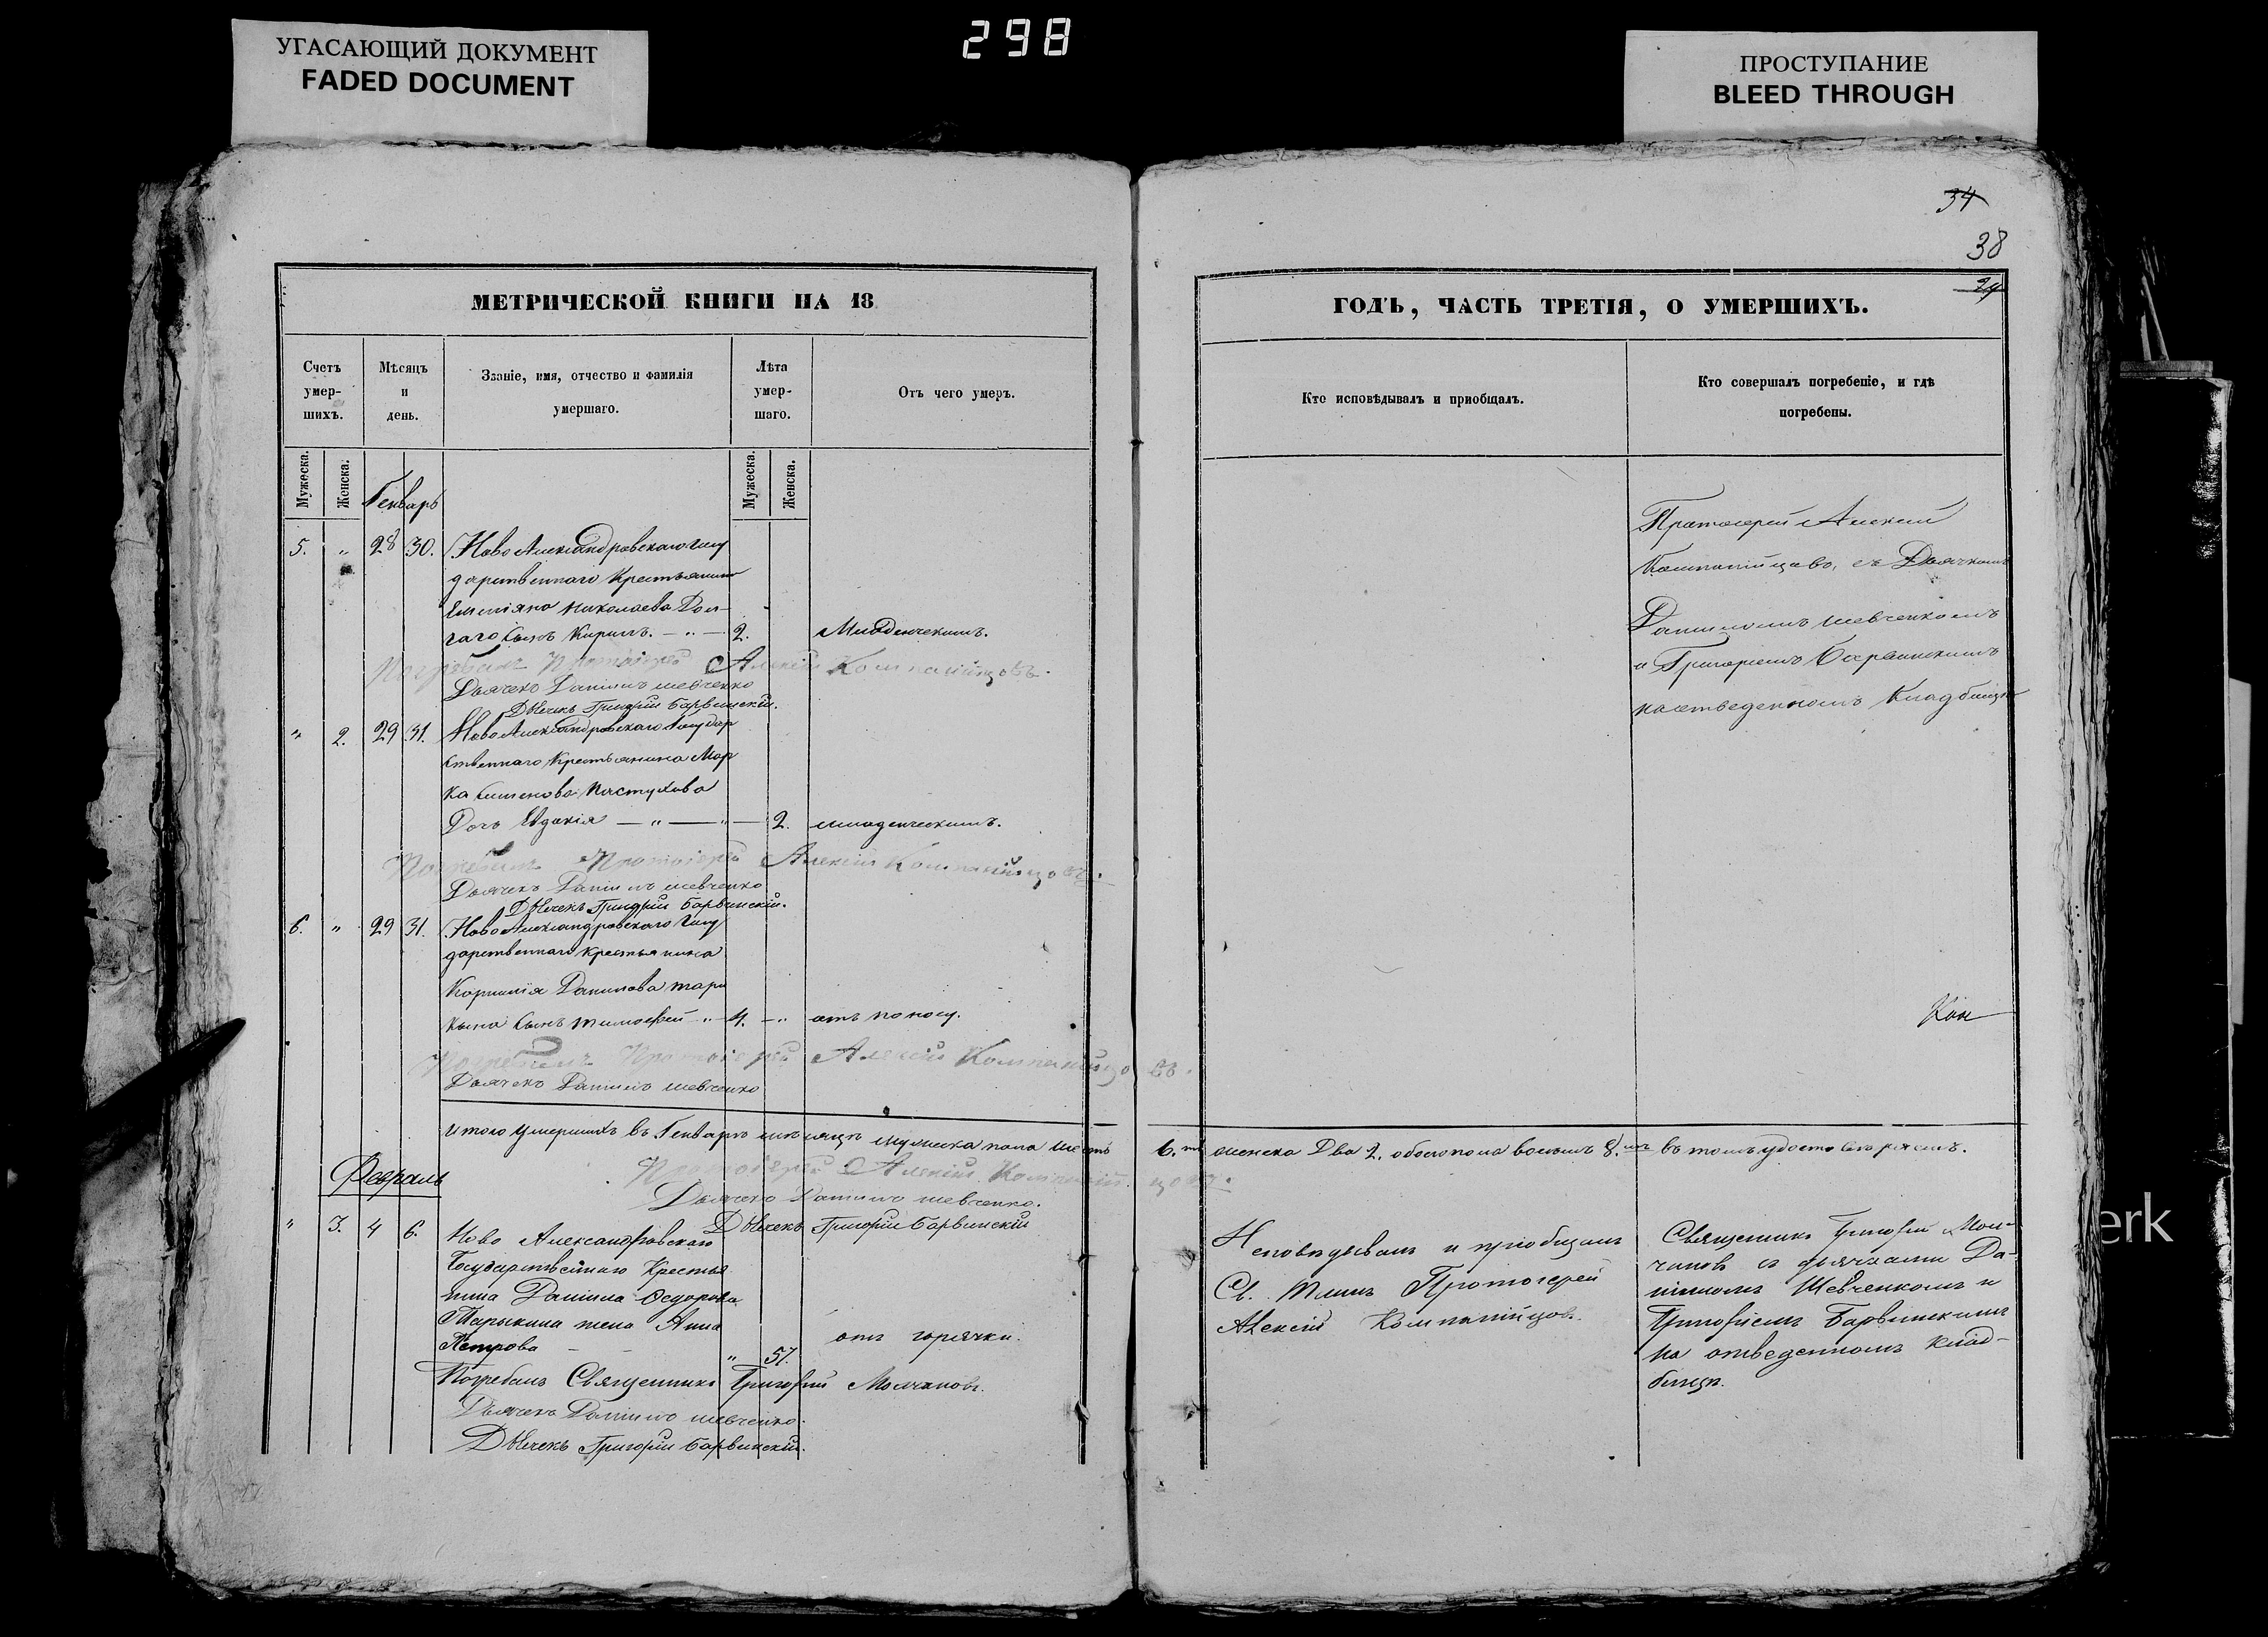 УГАСАЮЩИЙ ДОКУМЕНТ
FADED DOCUMENT
298
ПРОСТУПАНИЕ
BLEED THROUGH
34
38
МЕТРИЧЕСКОЙ КНИГИ НА 18
Счетъ умер-шихъ.
Мѣсяцъ и день.
Званіе, имя, отчество и фамилія умершаго.
Лѣта умер-шаго.
Отъ чего умеръ.
Мужеска.
Женска.
Мужеска.
Женска.
Генварь
5. " 28 30. Ново Александровскаго Госу
дарственнаго Крестьянина
Емеліяна Николаева Дол-
гаго сынъ Кирилъ. — " — 2. Младенческимъ.
Погребалъ Протоіерей Алексій Компанійцовъ.
Дьячекъ Даніилъ Шевченко
Дьячекъ Григорій Барвинскій.
" 2. 29 31. Ново Александровскаго Государ
ственнаго Крестьянина Мар
ка Семенова Пастухова
Дочь Евдокія — " — " — 2. младенческимъ.
Погребалъ Протоіерей Алексій Компанійцовъ.
Дьячекъ Даніилъ Шевченко
Дьячекъ Григорій Барвинскій.
6. " 29 31. Ново Александровскаго Госу
дарственнаго крестьянина
Корнилія Данилова Тары
кина сынъ Тимофей " 4. — " отъ поносу.
Погребалъ Протоіерей Алексій Компанійцовъ.
Дьячекъ Даніилъ Шевченко
Итого умершихъ въ Генварѣ мѣсяцѣ мужеска пола шесть
Протоіерей Алексій Компанійцовъ.
Дьячекъ Даніилъ Шевченко.
Дьячекъ Григорій Барвинскій
Февраль
" 3. 4 6. Ново Александровскаго
Государственнаго Крестья
нина Даніила Федорова
Тарыкина жена Анна
Петрова — — " 57. отъ горячки.
Погребалъ Священникъ Григорій Молчановъ.
Дьячекъ Даніилъ Шевченко.
Дьячекъ Григорій Барвинскій.
ГОДЪ, ЧАСТЬ ТРЕТІЯ, О УМЕРШИХЪ.
Кто исповѣдывалъ и пріобщалъ.
Кто совершалъ погребеніе, и гдѣ погребены.
Протоіерей Алексій
Компанійцовъ, съ Дьячкомъ
Даніиломъ Шевченкомъ
и Григоріемъ Барвинскимъ
на отведенномъ Кладбищѣ
6.ть женска Два 2. обоего пола восемь 8.мь въ томъ удостовѣряемъ.
Исповѣдывалъ и пріобщалъ
Св. Таинъ Протоіерей
Алексій Компанійцовъ.
Священникъ Григорій Мол-
чановъ съ дьячками Да-
ніиломъ Шевченкомъ и
Григоріемъ Барвинскимъ
на отведенномъ клад-
бищѣ.
erk